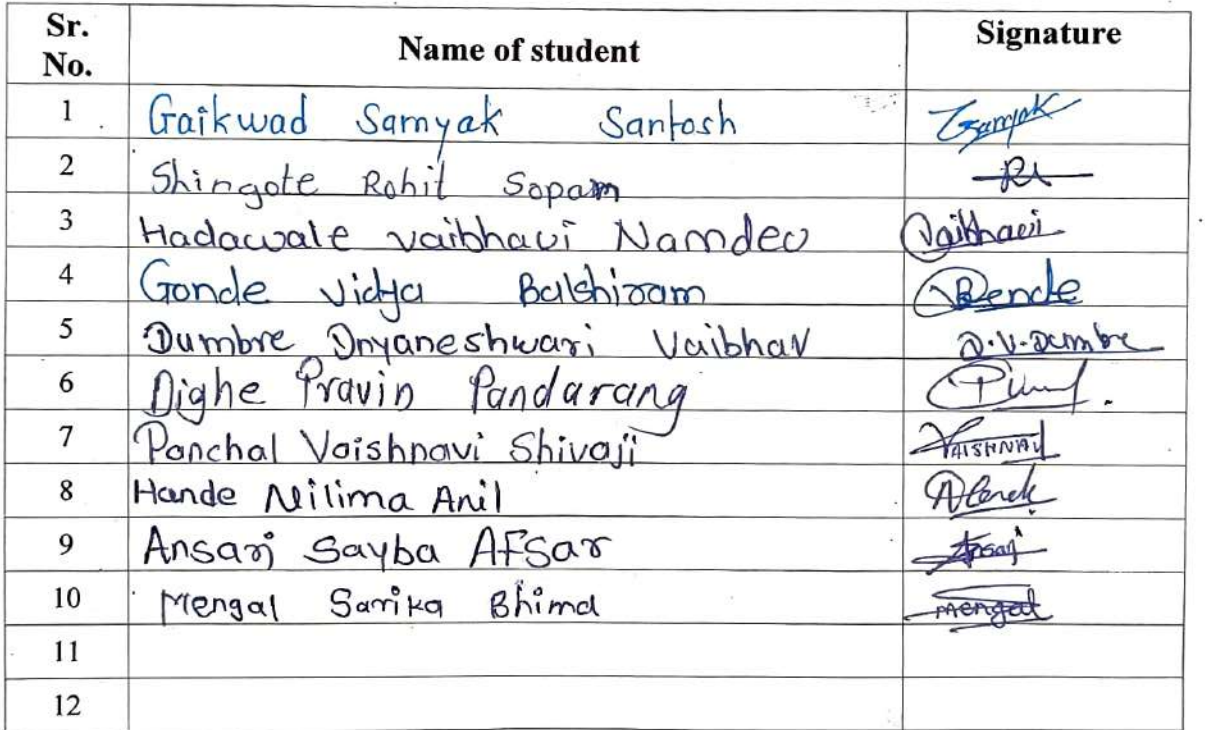 Sr. No. Name of student Signature
1 Gaikwad Samyak Santosh Gsamyak
2 Shingote Rohit Sopam
3 Hadawale vaibhavi Namdev Vaibhavi
4 Gonde Vidya Balshiram
5 Dumbre Dnyaneshwari Vaibhav D.V.Dumbre
6 Dighe Pravin Pandarang
7 Panchal Vaishnavi Shivaji VAISHNAVI
8 Hande Nilima Anil
9 Ansari Sayba AFSar Ansari
10 Mengal Sarika Bhima mengal
11
12